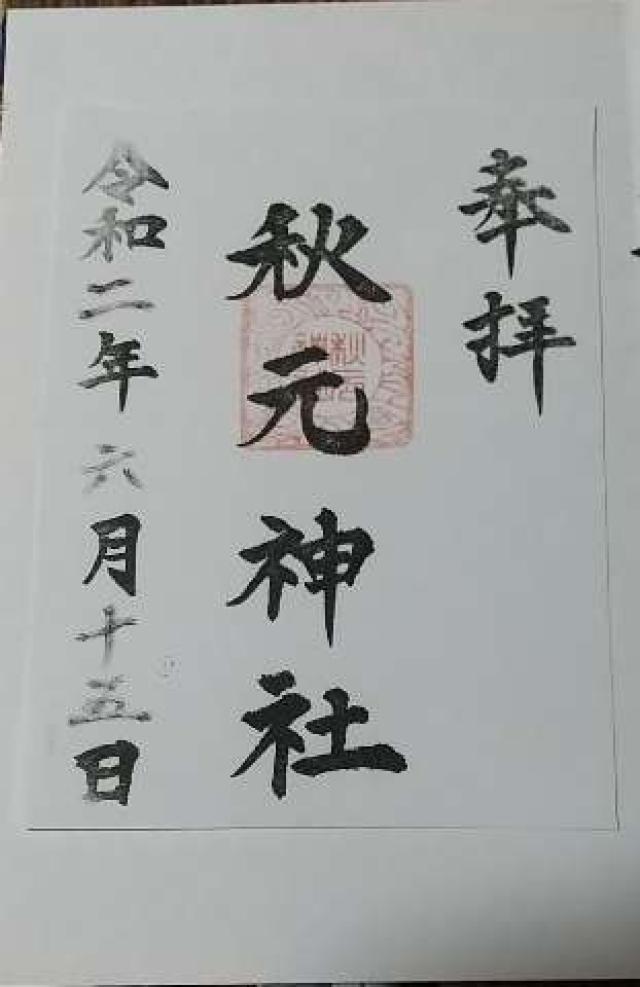 奉拝
秋元神社
令和二年六月十五日